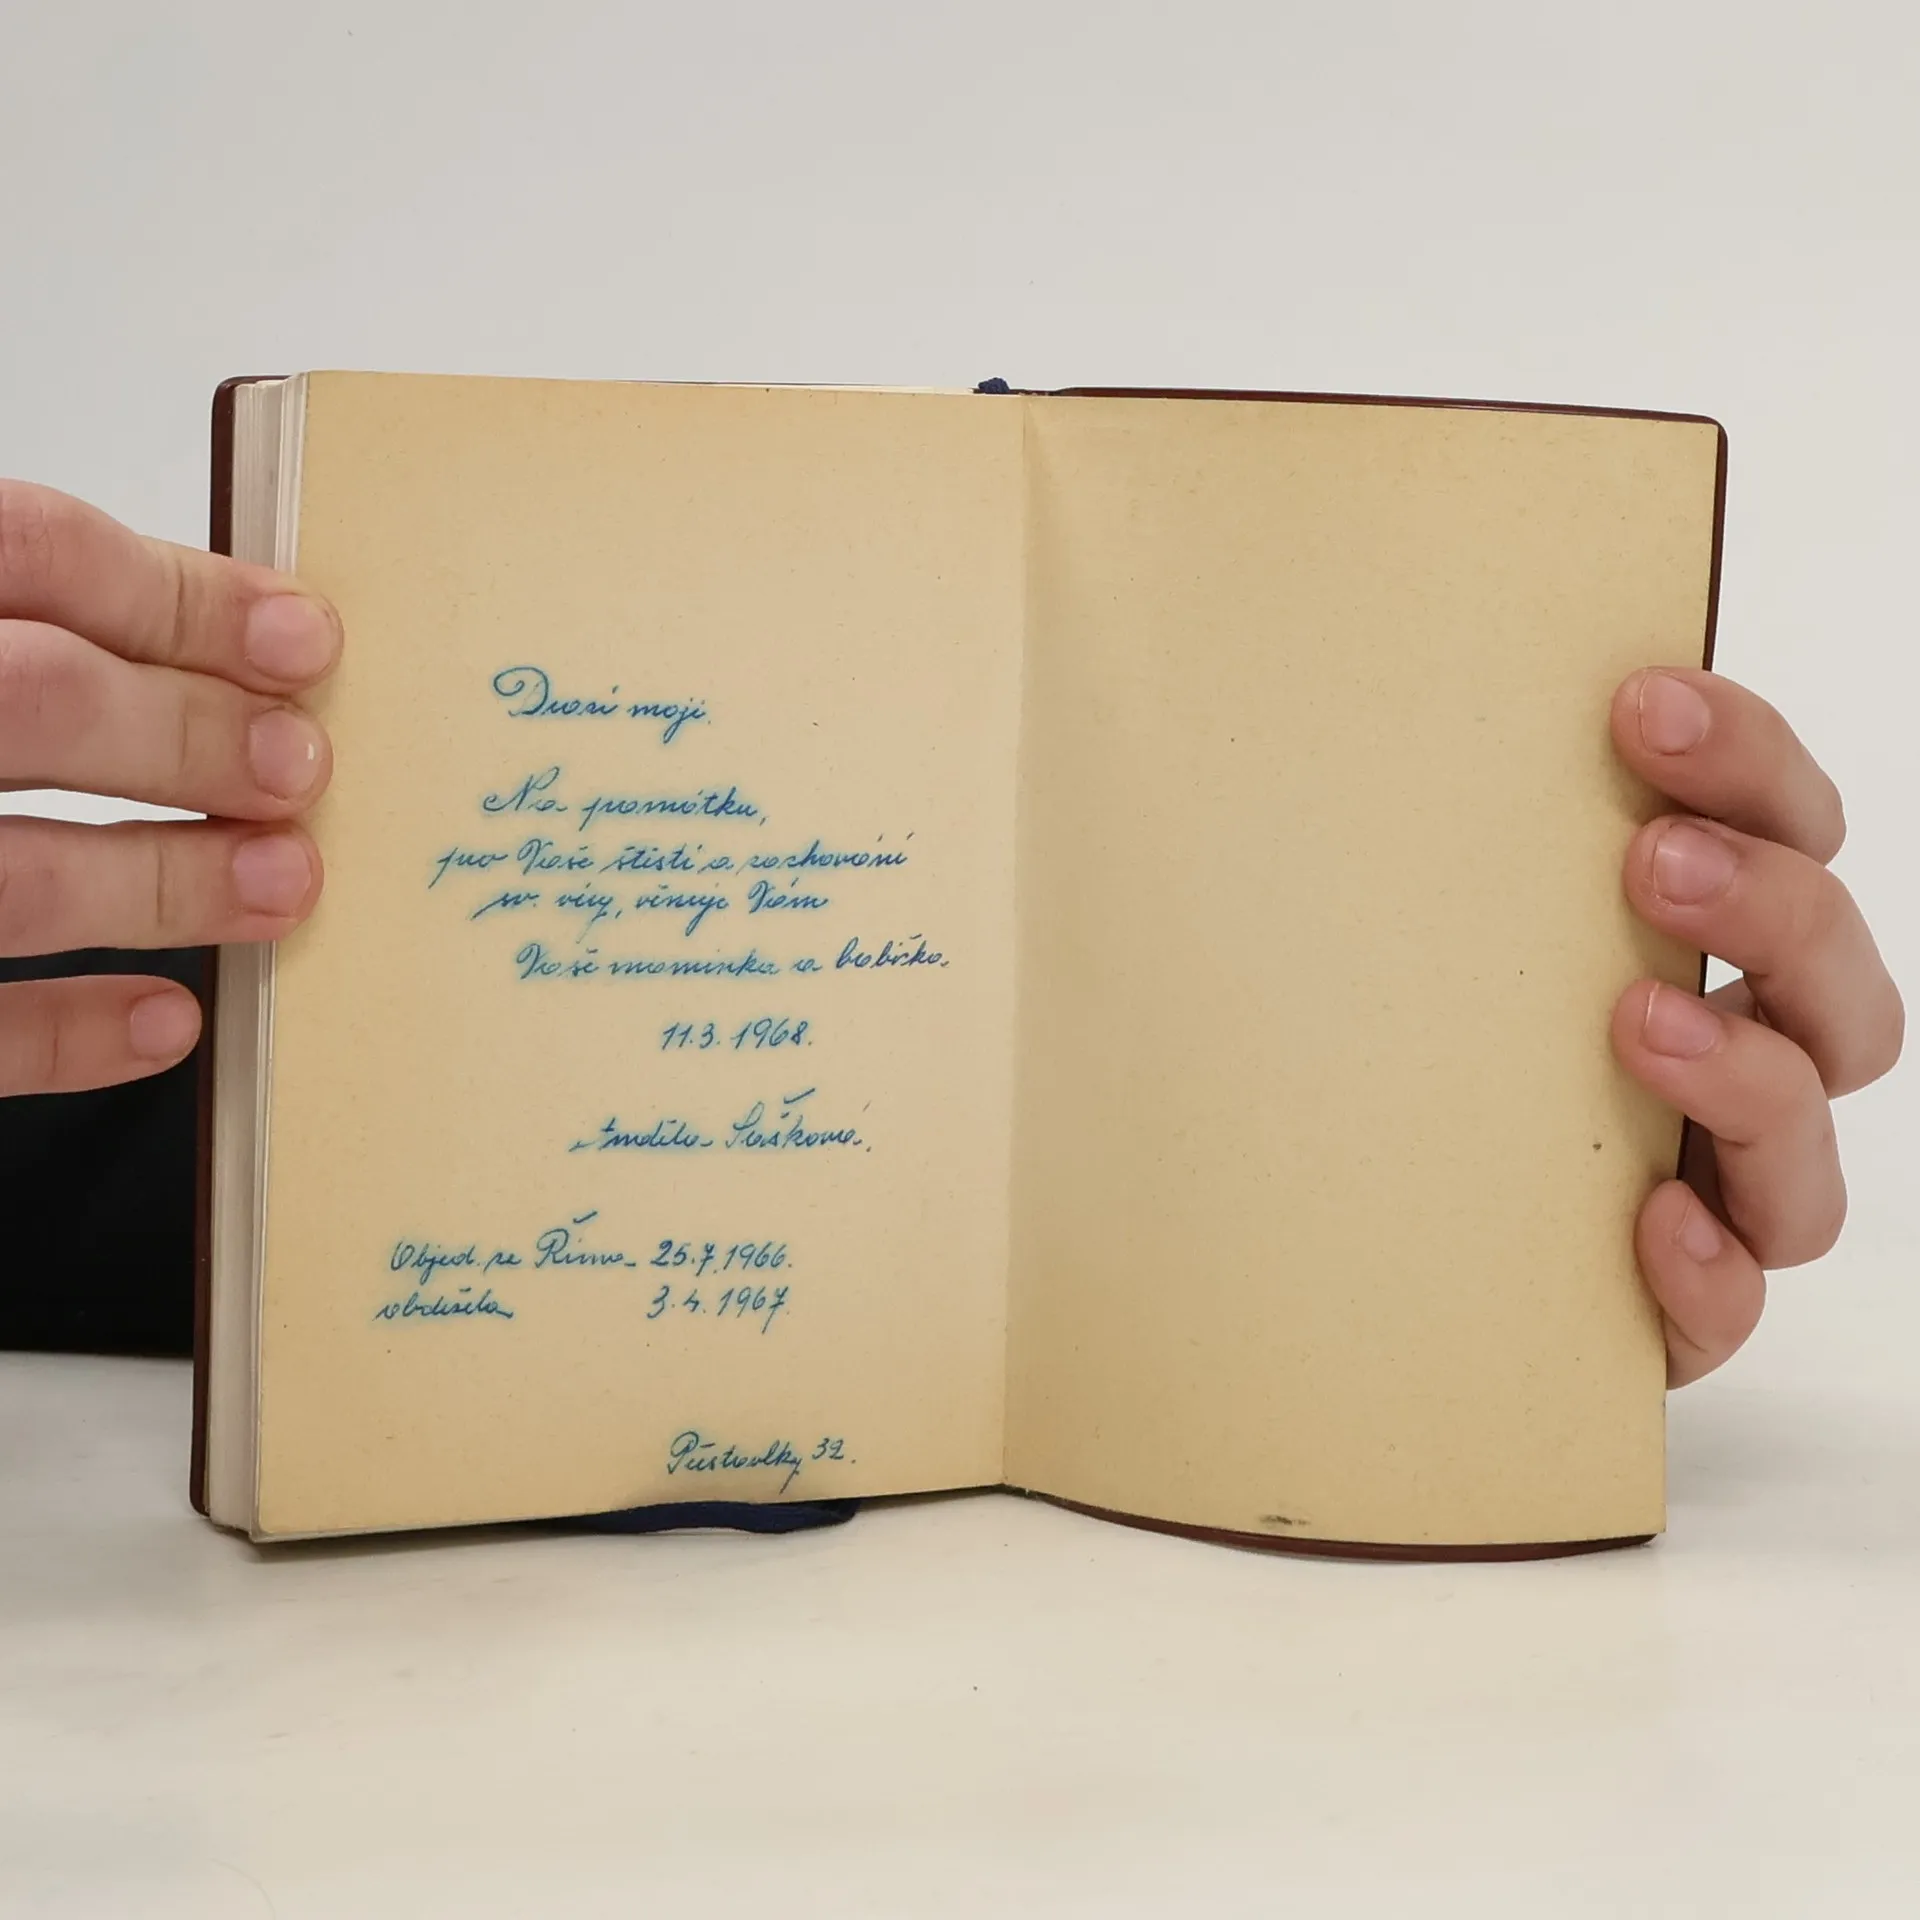 Drazí moji.
Na pomátku,
pro Vaše štěstí a zachování
sv. víry, věnuje Vám
Vaše maminka a babička.
11.3.1968.
Anděla Sašková.
Objed. ze Říma 25.7.1966.
obdržela 3.4.1967.
Půstovlky 32.